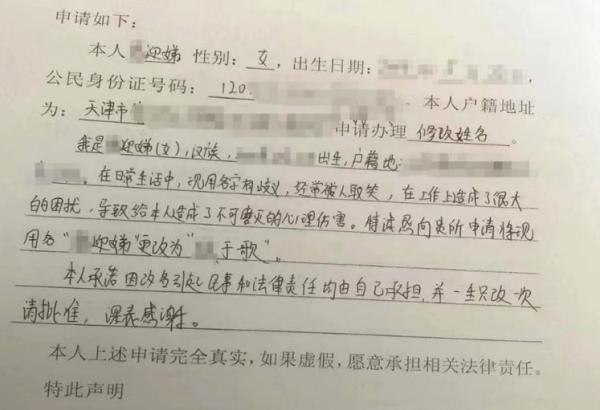 申请如下:
本人 迎娣 性别: 女, 出生日期:
公民身份证号码: 120 本人户籍地址
为: 天津市 申请办理 修改姓名。
我是 迎娣(女), 汉族, 出生, 户籍地:
。在日常生活中, 现用名字有歧义, 经常被人取笑, 在工作上造成了很大
的困扰, 导致给本人造成了不可磨灭的心理伤害。特此 向贵所申请将现
用名“ 迎娣”更改为“ 于歌”。
本人承诺因改名引起民事和法律责任均由自己承担, 并一生只改一次
请批准, 深表感谢。
本人上述申请完全真实, 如果虚假, 愿意承担相关法律责任。
特此声明